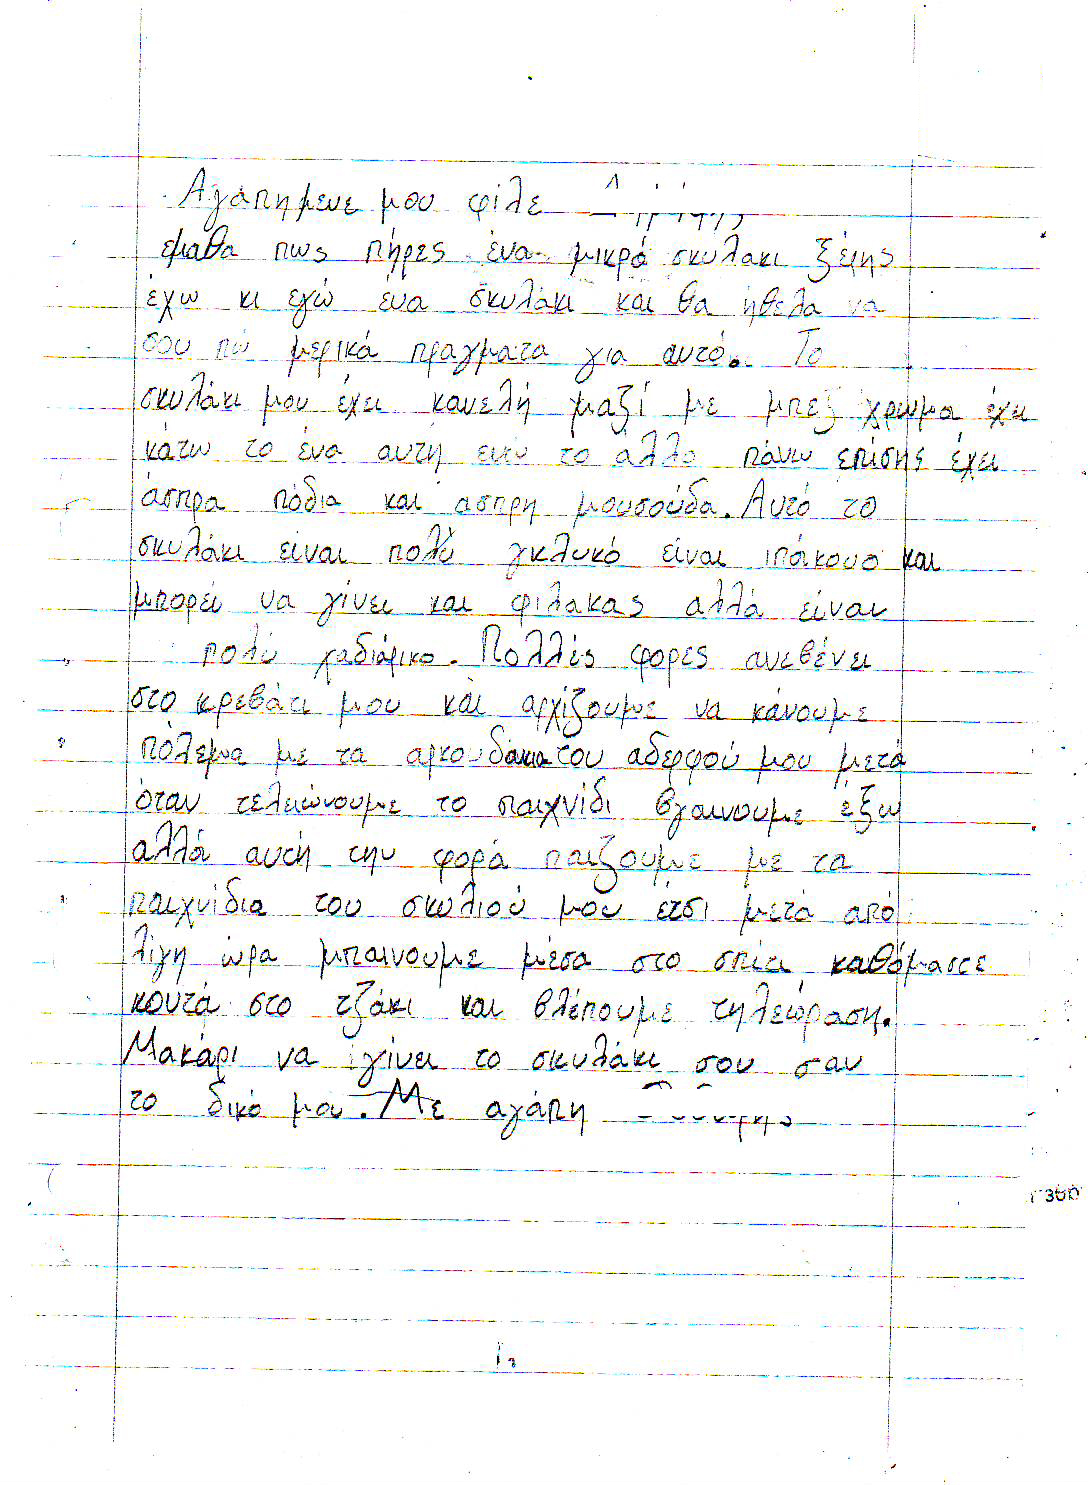 Αγάπημενε μου φίλε
εμαθα πως πήρες ένα μικρό σκυλακι ξέρης
έχω κι εγώ ένα σκυλάκι και θα ήθελα να
σου πω μερικά πραγματα για αυτό. Το
σκυλάκι μου έχει κανελή μαζί με μπεζ χρωμα έχει
κάτω το ένα αυτή ενώ το άλλο πάνω επίσης έχει
άσπρα πόδια και άσπρη μουσούδα. Αυτό το
σκυλάκι είναι πολύ γκλυκό είναι ιπάκουο και
μπορεί να γίνει και φιλακας αλλά είναι
πολύ χαδιάρικο. Πολλές φορες ανεβένει
στο κρεβάτι μου και αρχίζουμε να κάνουμε
πόλεμο με τα αρκουδάκια του αδερφού μου μετά
όταν τελειώνουμε το παιχνίδι βγαινουμε έξω
αλλά αυτή την φορά παιζουμε με τα
παιχνίδια του σκυλιού μου έτσι μετά από
λίγη ώρα μπαινουμε μέσα στο σπίτι καθόμαστε
κοντά στο τζάκι και βλέπουμε τηλεώραση.
Μακάρι να γίνει το σκυλάκι σου σαν
το δικό μου. Με αγάπη